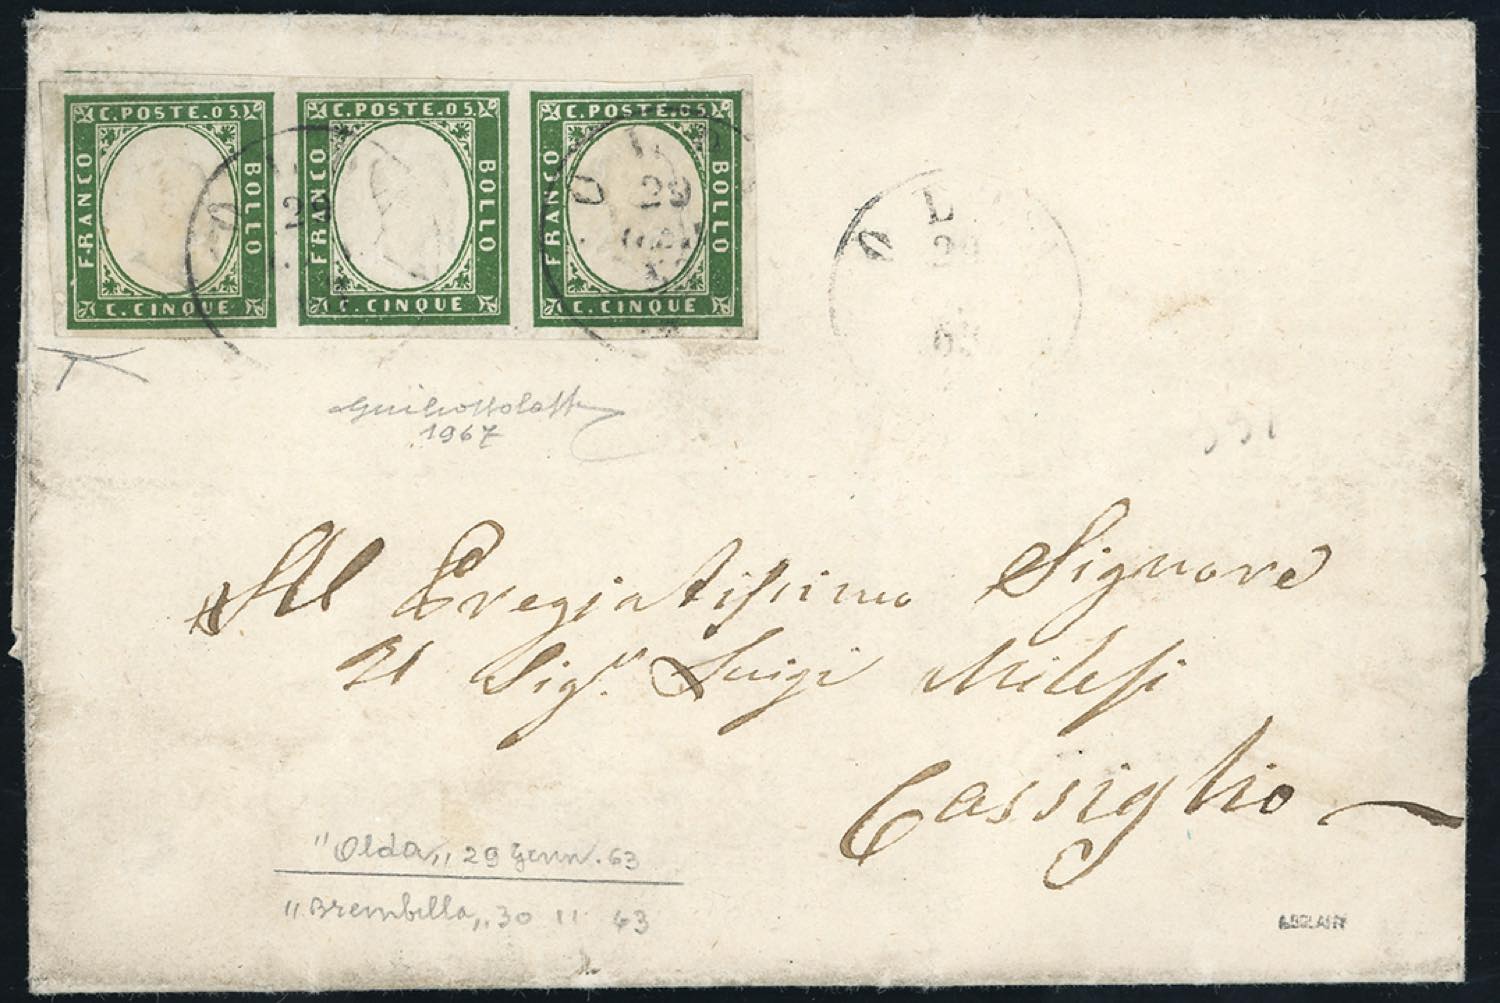 C. POSTE. 05. C. POSTE. 05. C. POSTE. 05.
FRANCO BOLLO FRANCO BOLLO FRANCO BOLLO
C. CINQUE C. CINQUE C. CINQUE
O 29
O 29
O L
29
63
1967
Al Pregiatissimo Signore
Il Sigr. Luigi Milesi
Cassiglio
"Olda,, 29 Genn. 63
"Brembilla,, 30 11 63